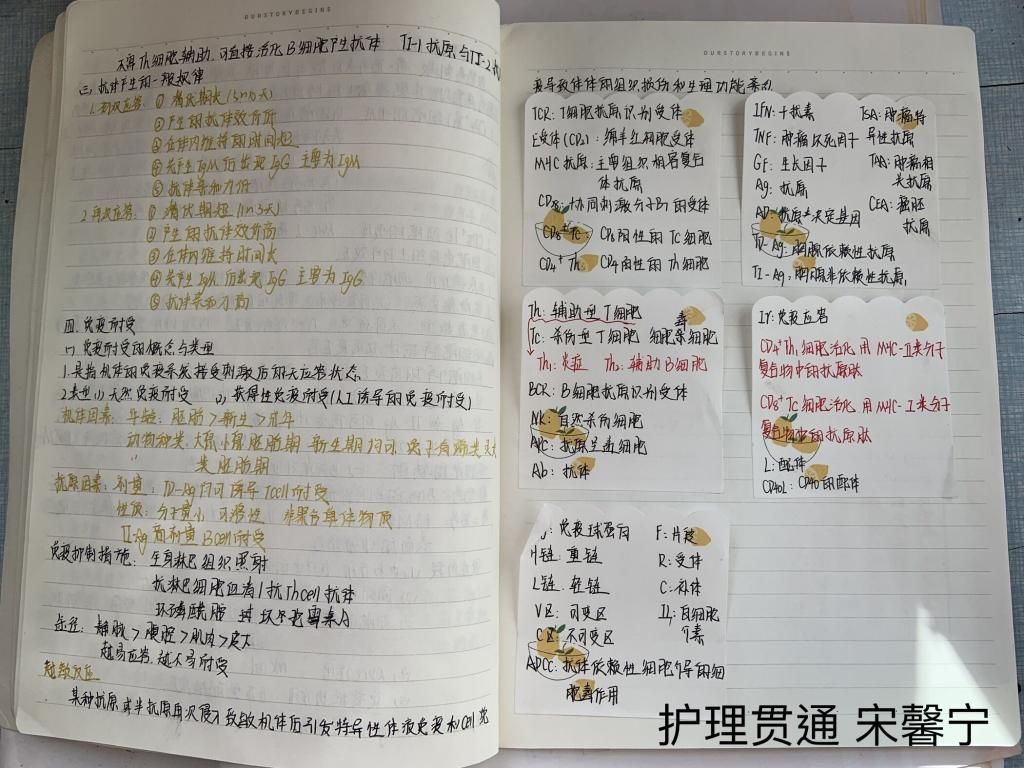 OURSTORYBEGINS
不需Th细胞辅助,可直接活化B细胞产生抗体 TI-1抗原与TI-2抗
(三)抗体产生的一般规律
1.初次应答:① 潜伏期长
② 产生的抗体效价低
③ 在体内维持时间短
④ 先产生IgM后出现IgG 主要为IgM
⑤ 抗体亲和力低
2.再次应答:① 潜伏期短
② 产生的抗体效价高
③ 在体内维持时间长
④ 先产生IgM后出现IgG 主要为IgG
⑤ 抗体亲和力高
四.免疫耐受
(一)免疫耐受的概念与类型
1.是指机体的免疫系统接受刺激后的无应答状态
2.类型(1)天然免疫耐受 (2)获得性免疫耐受(人工诱导的免疫耐受)
机体因素:年龄:胚胎>新生>成年
动物种类:大鼠小鼠胚胎期 新生期均可
类 胚胎期
抗原因素:剂量:TD-Ag均可诱导Tcell耐受
性质:分子量小 可溶性 非聚合单体物质
TI-Ag 高剂量Bcell耐受
免疫抑制措施:全身淋巴组织照射
抗淋巴细胞血清/抗Thcell抗体
环磷酰胺 环孢霉素A
途径:静脉>腹腔>肌肉>皮下
越易应答 越不易耐受
超敏反应
某种抗原或半抗原再次侵入致敏机体后引发特异性体液免疫和cell免
OURSTORYBEGINS
要导致伴体的组织损伤和生理功能紊乱
TCR:T细胞抗原识别受体
E受体(CD2):绵羊红细胞受体
MHC抗原:主要组织相容复合
体抗原
CD28:协同刺激分子B7的受体
CD8⁺Tc:CD8阳性的Tc细胞
CD4⁺Th:CD4阳性的Th细胞
IFN:干扰素
TNF:肿瘤坏死因子
GF:生长因子
Ag:抗原
AD:抗原决定基因
TD-Ag:胸腺依赖性抗原
TI-Ag:胸腺非依赖性抗原
TSA:肿瘤特
异性抗原
TAA:肿瘤相
关抗原
CEA:癌胚
抗原
Th:辅助型T细胞
毒
Tc:杀伤型T细胞 细胞杀细胞
Th1:炎症 Th2:辅助B细胞
BCR:B细胞抗原识别受体
NK:自然杀伤细胞
APC:抗原呈递细胞
Ab:抗体
Ir:免疫应答
CD4⁺Th细胞活化用MHC-Ⅱ类分子
复合物中的抗原肽
CD8⁺Tc细胞活化用MHC-Ⅰ类分子
复合物中的抗原肽
L:配体
CD40L:CD40的配体
Ig:免疫球蛋白
H链:重链
L链:轻链
V区:可变区
C区:不可变区
F:片段
R:受体
C:补体
IL:白细胞
介素
ADCC:抗体依赖性细胞介导的细
胞毒作用
护理贯通 宋馨宁